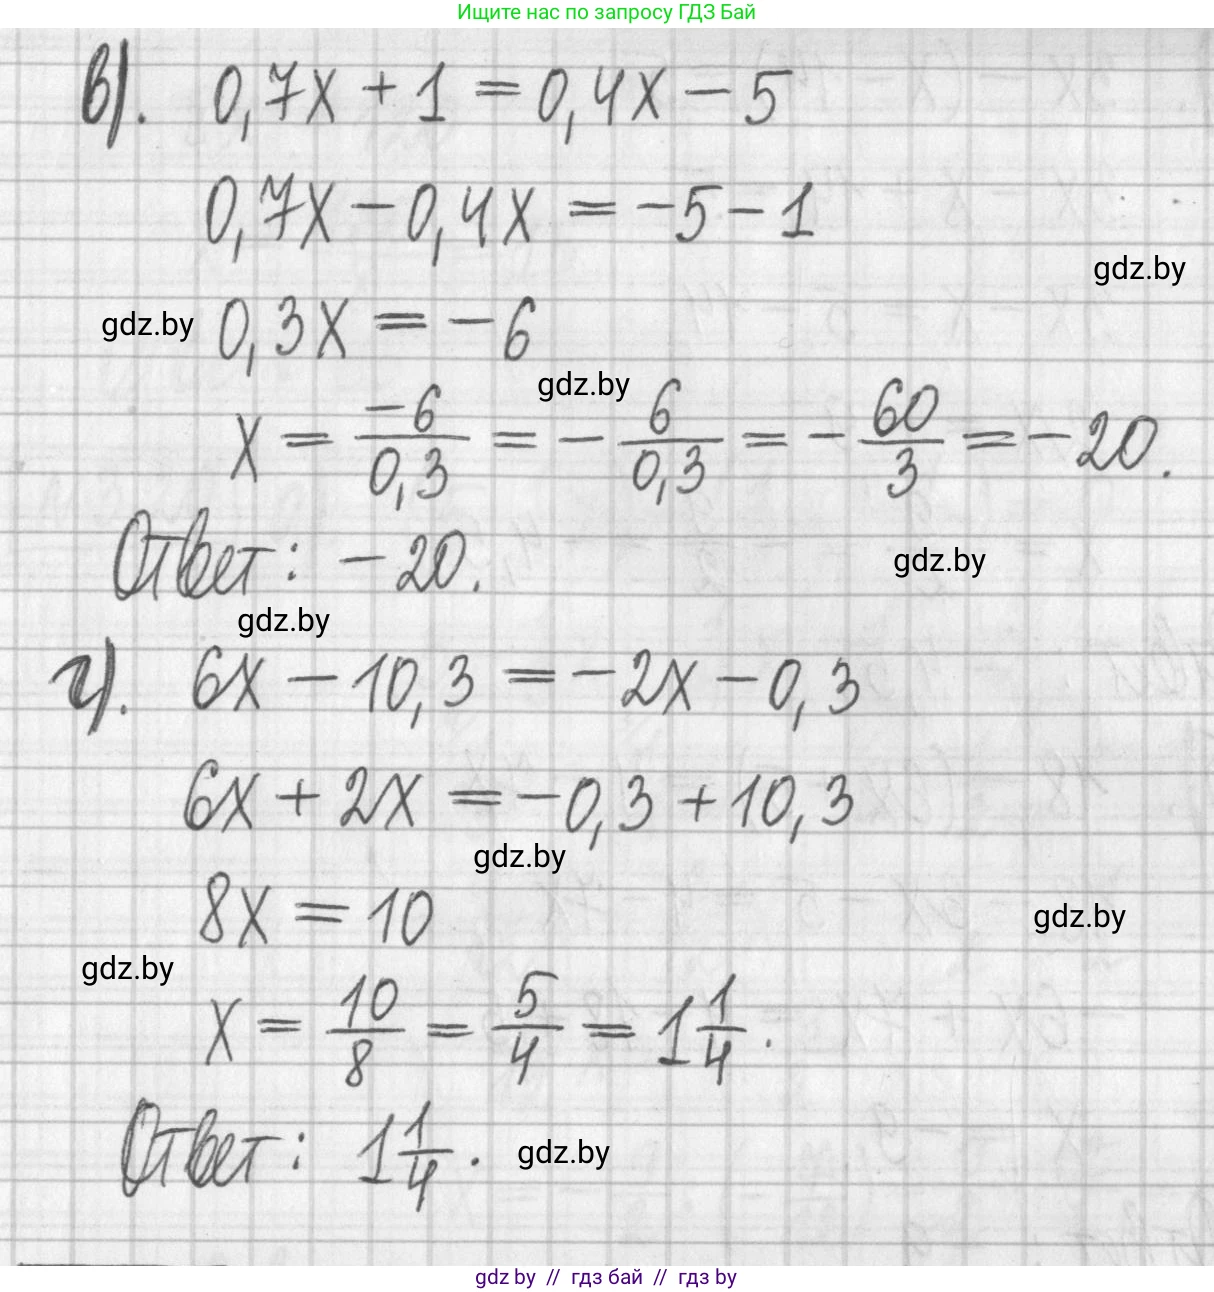 Ищите нас по запросу ГДЗ Бай
в). 0,7x + 1 = 0,4x - 5
0,7x - 0,4x = -5 - 1
gdz.by
gdz.by 0,3x = -6
gdz.by
x = -6/0,3 = - 6/0,3 = - 60/3 = -20.
Ответ: -20.
gdz.by
gdz.by
г). 6x - 10,3 = -2x - 0,3
6x + 2x = -0,3 + 10,3
gdz.by
8x = 10
gdz.by
gdz.by
x = 10/8 = 5/4 = 1 1/4.
Ответ: 1 1/4.
gdz.by
gdz by // гдз бай // гдз by